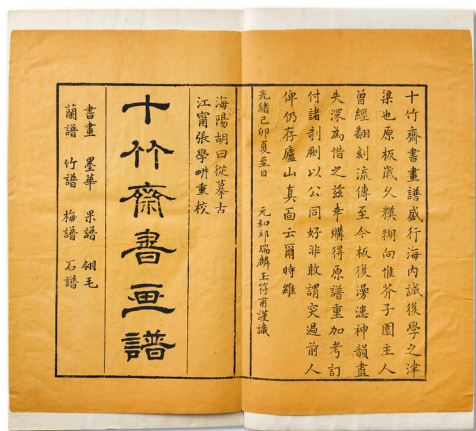 十竹齋書畫譜盛行海內誠後學之津
梁也原板歲久糢糊向惟芥子園主人
曾經翻刻流傳至今板復漫漶神韻盡
失深為惜之茲幸購得原譜重加考訂
付諸剞劂以公同好非敢謂突過前人
俾仍存廬山真面云爾時維
光緒己卯夏至日 元和邱瑞麟玉符甫謹識
海陽胡曰從摹古
江甯張學畊重校
十竹齋書画譜
書畫 墨華 果譜 翎毛
蘭譜 竹譜 梅譜 石譜